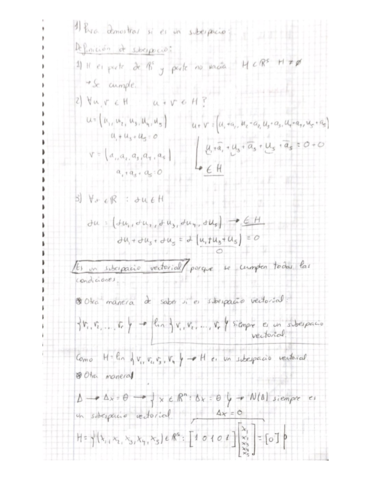 1) Para demostrar si es un subespacio
Definición de subespacio:
1) H es parte de ℝⁿ y parte no vacía H ⊂ ℝⁿ H ≠ ∅
→ Se cumple.
2) ∀u, v ∈ H u + v ∈ H?
u = (u₁, u₂, u₃, u₄, u₅)
u₁ + u₃ + u₅ = 0
v = (a₁, a₂, a₃, a₄, a₅)
a₁ + a₃ + a₅ = 0
u + v = (u₁+a₁, u₂+a₂, u₃+a₃, u₄+a₄, u₅+a₅)
u₁ + a₁ + u₃ + a₃ + u₅ + a₅ = 0 + 0
∈ H
3) ∀α ∈ ℝ : αu ∈ H
αu = (αu₁, αu₂, αu₃, αu₄, αu₅) → ∈ H
αu₁ + αu₃ + αu₅ = α (u₁ + u₃ + u₅) = 0
0
Es un subespacio vectorial porque se cumplen todas las
condiciones.
Otra manera de saber si es subespacio vectorial
{v₁, v₂, ..., vᵣ} → lin {v₁, v₂, ..., vᵣ} siempre es un subespacio
vectorial
Como H = lin {v₁, v₂, v₃, v₄} → H es un subespacio vectorial
Otra manera
A → Ax = θ → {x ∈ ℝⁿ : Ax = θ} → N(A) siempre es
un subespacio vectorial
Ax = 0
H = {(x₁, x₂, x₃, x₄, x₅) ∈ ℝ⁵ : [1 0 1 0 1] [x₁ x₂ x₃ x₄ x₅] = [0]}